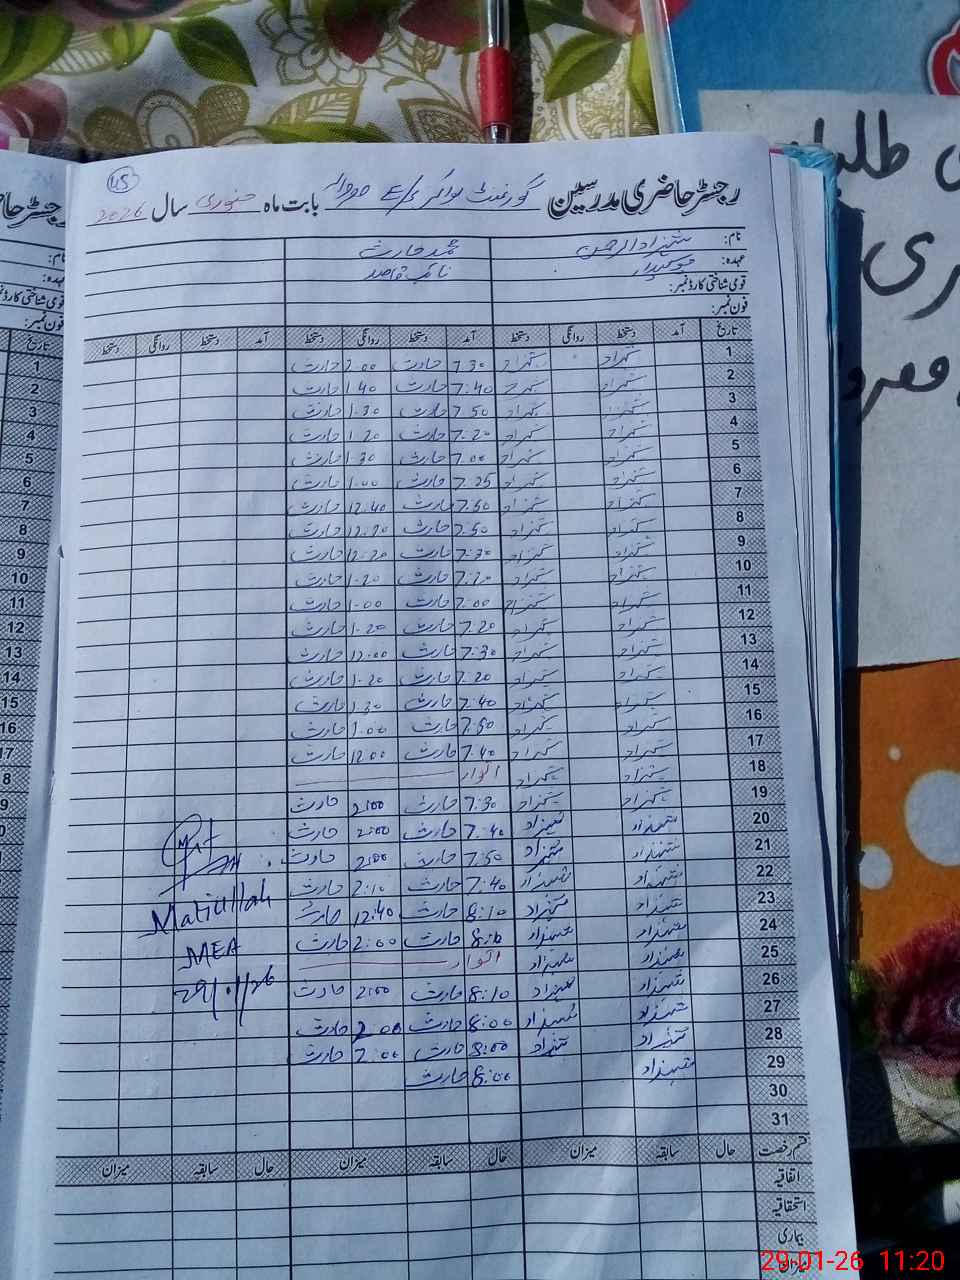 45
رجسٹر حاضری مدرسین گورنمنٹ بوائز بابت ماہ جنوری سال 2026
نام: شہزاد الرحمن محمد حارث
عہدہ: چوکیدار نائب قاصد
قومی شناختی کارڈ نمبر:
فون نمبر:
تاریخ آمد دستخط روانگی دستخط آمد دستخط روانگی دستخط آمد دستخط روانگی دستخط
1 شہزاد شہزاد 7.30 حارث 2.00 حارث
2 شہزاد شہزاد 7:40 حارث 1.40 حارث
3 شہزاد شہزاد 7.50 حارث 1.30 حارث
4 شہزاد شہزاد 7.20 حارث 1.20 حارث
5 شہزاد شہزاد 7.00 حارث 1.30 حارث
6 شہزاد شہزاد 7.25 حارث 1.00 حارث
7 شہزاد شہزاد 7.50 حارث 12.40 حارث
8 شہزاد شہزاد 7.50 حارث حارث
9 شہزاد شہزاد 7:30 حارث 12:20 حارث
10 شہزاد شہزاد 7:20 حارث 1.20 حارث
11 شہزاد شہزاد 7:00 حارث 1.00 حارث
12 شہزاد شہزاد 7.20 حارث 1.20 حارث
13 شہزاد شہزاد 7:30 حارث 12:00 حارث
14 شہزاد شہزاد 7.20 حارث 1.20 حارث
15 شہزاد شہزاد 7.40 حارث 1.30 حارث
16 شہزاد شہزاد 7.50 حارث 1.00 حارث
17 شہزاد شہزاد 7.40 حارث 12.00 حارث
18 شہزاد شہزاد اتوار
19 شہزاد شہزاد 7:30 حارث 2:00 حارث
20 شہزاد شہزاد 7:40 حارث 2:00 حارث
21 شہزاد شہزاد 7:50 حارث 2:00 حارث
22 شہزاد شہزاد 7:40 حارث 2:10 حارث
23 شہزاد شہزاد 8:10 حارث 12:40 حارث
24 شہزاد شہزاد 8:10 حارث 2:00 حارث
25 شہزاد شہزاد اتوار
26 شہزاد شہزاد 8:10 حارث 2:00 حارث
27 شہزاد شہزاد 8:00 حارث 2:00 حارث
28 شہزاد شہزاد 8:00 حارث 2:00 حارث
29 شہزاد 8:00 حارث
30
31
Matiullah
MEA
29/01/26
قسم رخصت حال سابقہ میزان حال سابقہ میزان حال سابقہ میزان
اتفاقیہ
استحقاقیہ
بیماری
میزان
رجسٹر حاضری
نام:
عہدہ:
قومی شناختی کارڈ نمبر
فون نمبر:
تاریخ
1
2
3
4
5
6
7
8
9
10
11
12
13
14
15
16
17
29-01-26 11:20